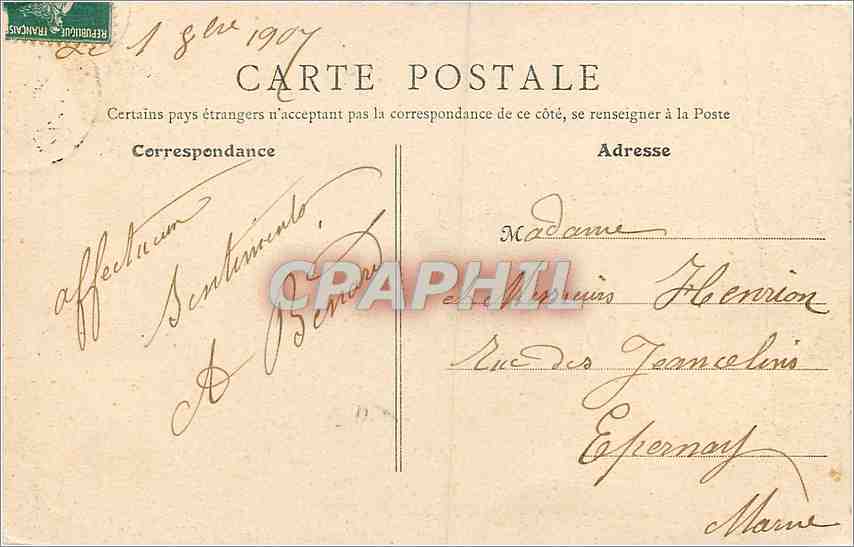 REPUBLIQUE FRANÇAISE
Le 1 9bre 1907
CARTE POSTALE
Certains pays étrangers n'acceptent pas la correspondance de ce côté, se renseigner à la Poste
Correspondance
Adresse
affectueux
Sentiments
A Bénard
Madame
et Messieurs Henrion
Rue des Jancelins
Epernay
Marne
CPAPHIL